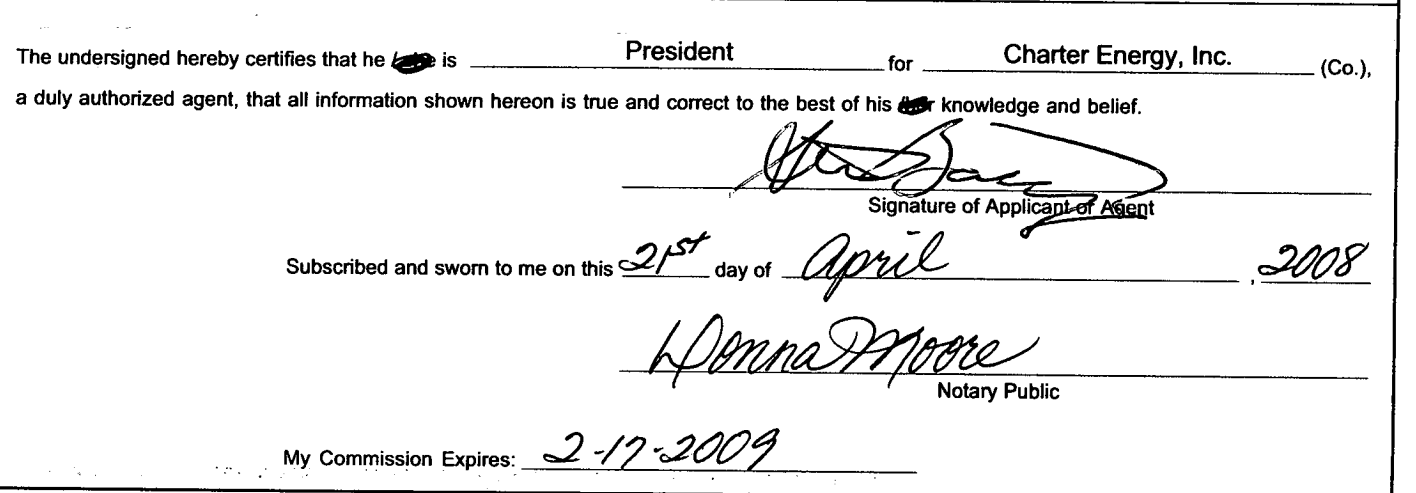 The undersigned hereby certifies that he is President for Charter Energy, Inc. (Co.),
a duly authorized agent, that all information shown hereon is true and correct to the best of his knowledge and belief.
Signature of Applicant or Agent
Subscribed and sworn to me on this 21st day of April, 2008
Donna Moore
Notary Public
My Commission Expires: 2-17-2009